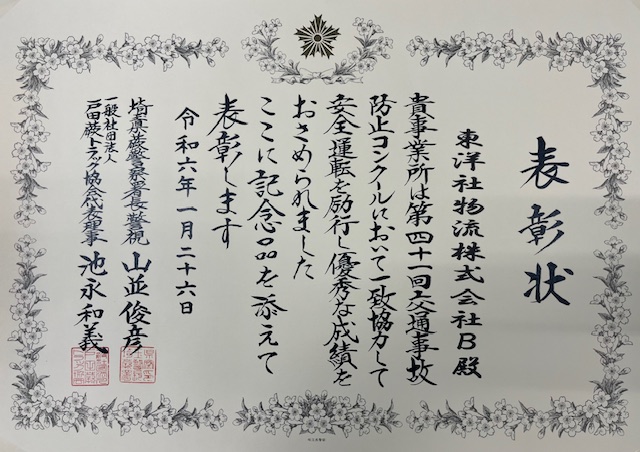 表彰状
東洋社物流株式会社B殿
貴事業所は第四十一回交通事故
防止コンクールにおいて一致協力して
安全運転を励行し優秀な成績を
おさめられました
ここに記念品を添えて
表彰します
令和六年一月二十六日
埼玉県蕨警察署長警視 山並俊彦
一般社団法人
戸田蕨トラック協会代表理事 池永和義